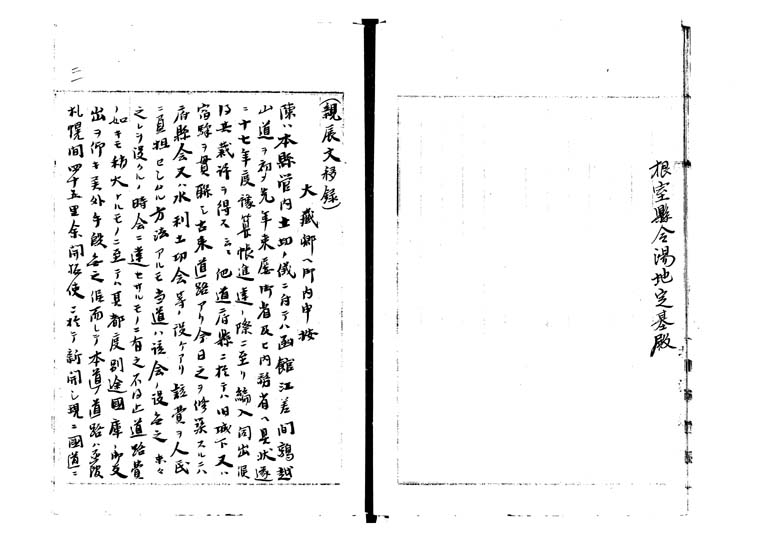 根室縣令湯地定基殿
(親展文移録)
大藏卿ヘ御内申按
陳ハ本縣管内土功ノ儀ニ付テハ函館江差間鶉越
山道ヲ初メ先年来屡御省及ヒ内務省ヘ具状遂
ニ十七年度豫算帳進達ノ際ニ至リ編入伺出候
得共裁許ヲ得ス
他道府縣ニ於テハ旧城下又ハ
宿驛ヲ貫聯シ古来道路アリ今日之ヲ修築スルニハ
府縣会又ハ水利土功会等ノ設ケアリ該費ヲ人民
ニ負担セシムル方法アルモ当道ハ該会ノ設無之
之レヲ設クルノ時会ニ達セサルモノニ有之不得止道路費
ノ如キモ稍大ナルモノニ至テハ其都度別途國庫ノ御支
出ヲ仰キ候外手段無之候而シテ本道ノ道路ハ
札幌間四十五里余開拓使ニ於テ新開シ現ニ國道ニ
二